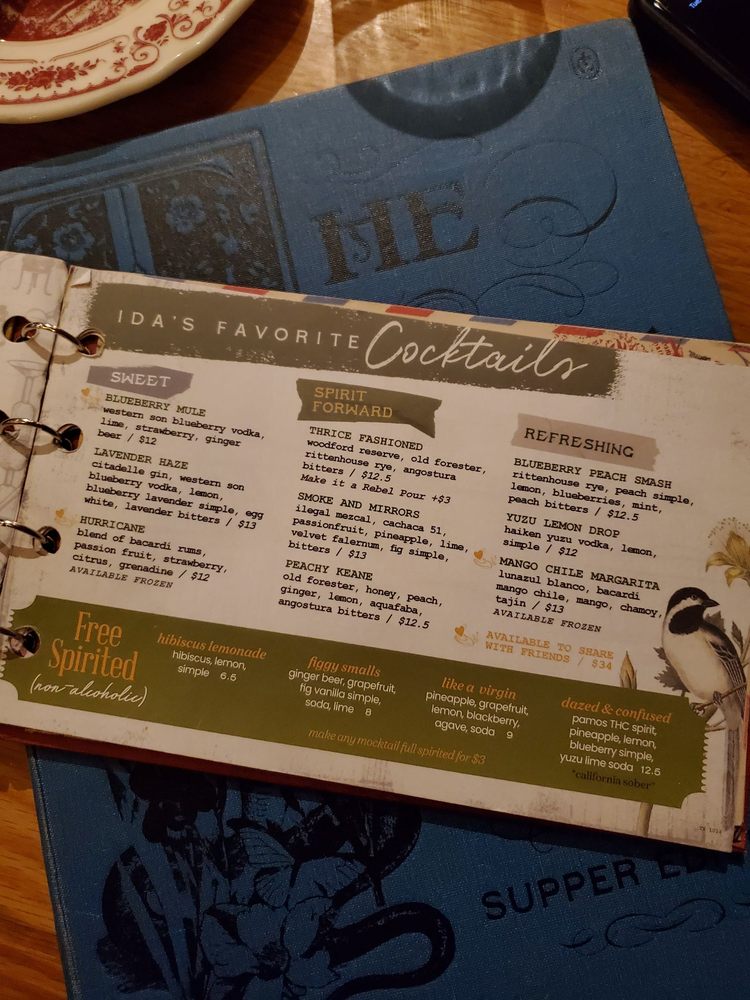 THE
IDA'S FAVORITE Cocktails
SWEET
BLUEBERRY MULE
western son blueberry vodka,
lime, strawberry, ginger
beer / $12
LAVENDER HAZE
citadelle gin, western son
blueberry vodka, lemon,
blueberry lavender simple, egg
white, lavender bitters / $13
HURRICANE
blend of bacardi rums,
passion fruit, strawberry,
citrus, grenadine / $12
AVAILABLE FROZEN
SPIRIT
FORWARD
THRICE FASHIONED
woodford reserve, old forester,
rittenhouse rye, angostura
bitters / $12.5
Make it a Rebel Pour +$3
SMOKE AND MIRRORS
ilegal mezcal, cachaca 51,
passionfruit, pineapple, lime,
velvet falernum, fig simple,
bitters / $13
PEACHY KEANE
old forester, honey, peach,
ginger, lemon, aquafaba,
angostura bitters / $12.5
REFRESHING
BLUEBERRY PEACH SMASH
rittenhouse rye, peach simple,
lemon, blueberries, mint,
peach bitters / $12.5
YUZU LEMON DROP
haiken yuzu vodka, lemon,
simple / $12
MANGO CHILE MARGARITA
lunazul blanco, bacardi
mango chile, mango, chamoy,
tajin / $13
AVAILABLE FROZEN
AVAILABLE TO SHARE
WITH FRIENDS / $34
Free
Spirited
(non-alcoholic)
hibiscus lemonade
hibiscus, lemon,
simple 6.5
figgy smalls
ginger beer, grapefruit,
fig vanilla simple,
soda, lime 8
like a virgin
pineapple, grapefruit,
lemon, blackberry,
agave, soda 9
dazed & confused
pamos THC spirit,
pineapple, lemon,
blueberry simple,
yuzu lime soda 12.5
"california sober"
make any mocktail full spirited for $3
SUPPER